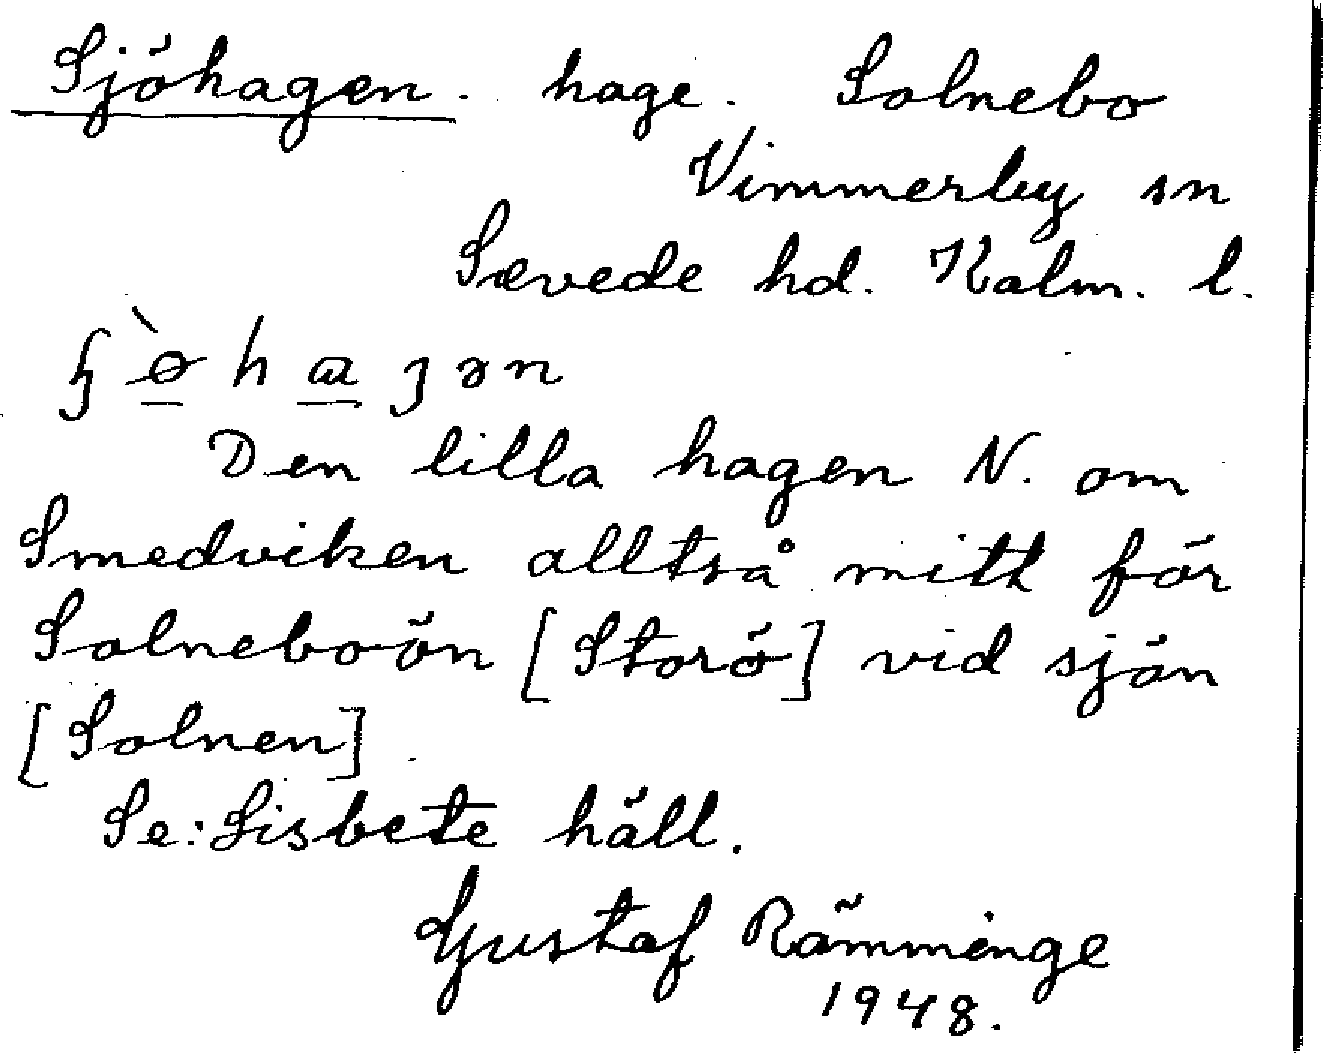 Sjöhagen. hage. Solnebo
Vimmerby sn
Sevede hd. Kalm. l.
Den lilla hagen N. om
Smedviken alltså mitt för
Solneboön [Storö] vid sjön
[Solnen]
Se: Lisbete häll.
Gustaf Rämminge
1948.